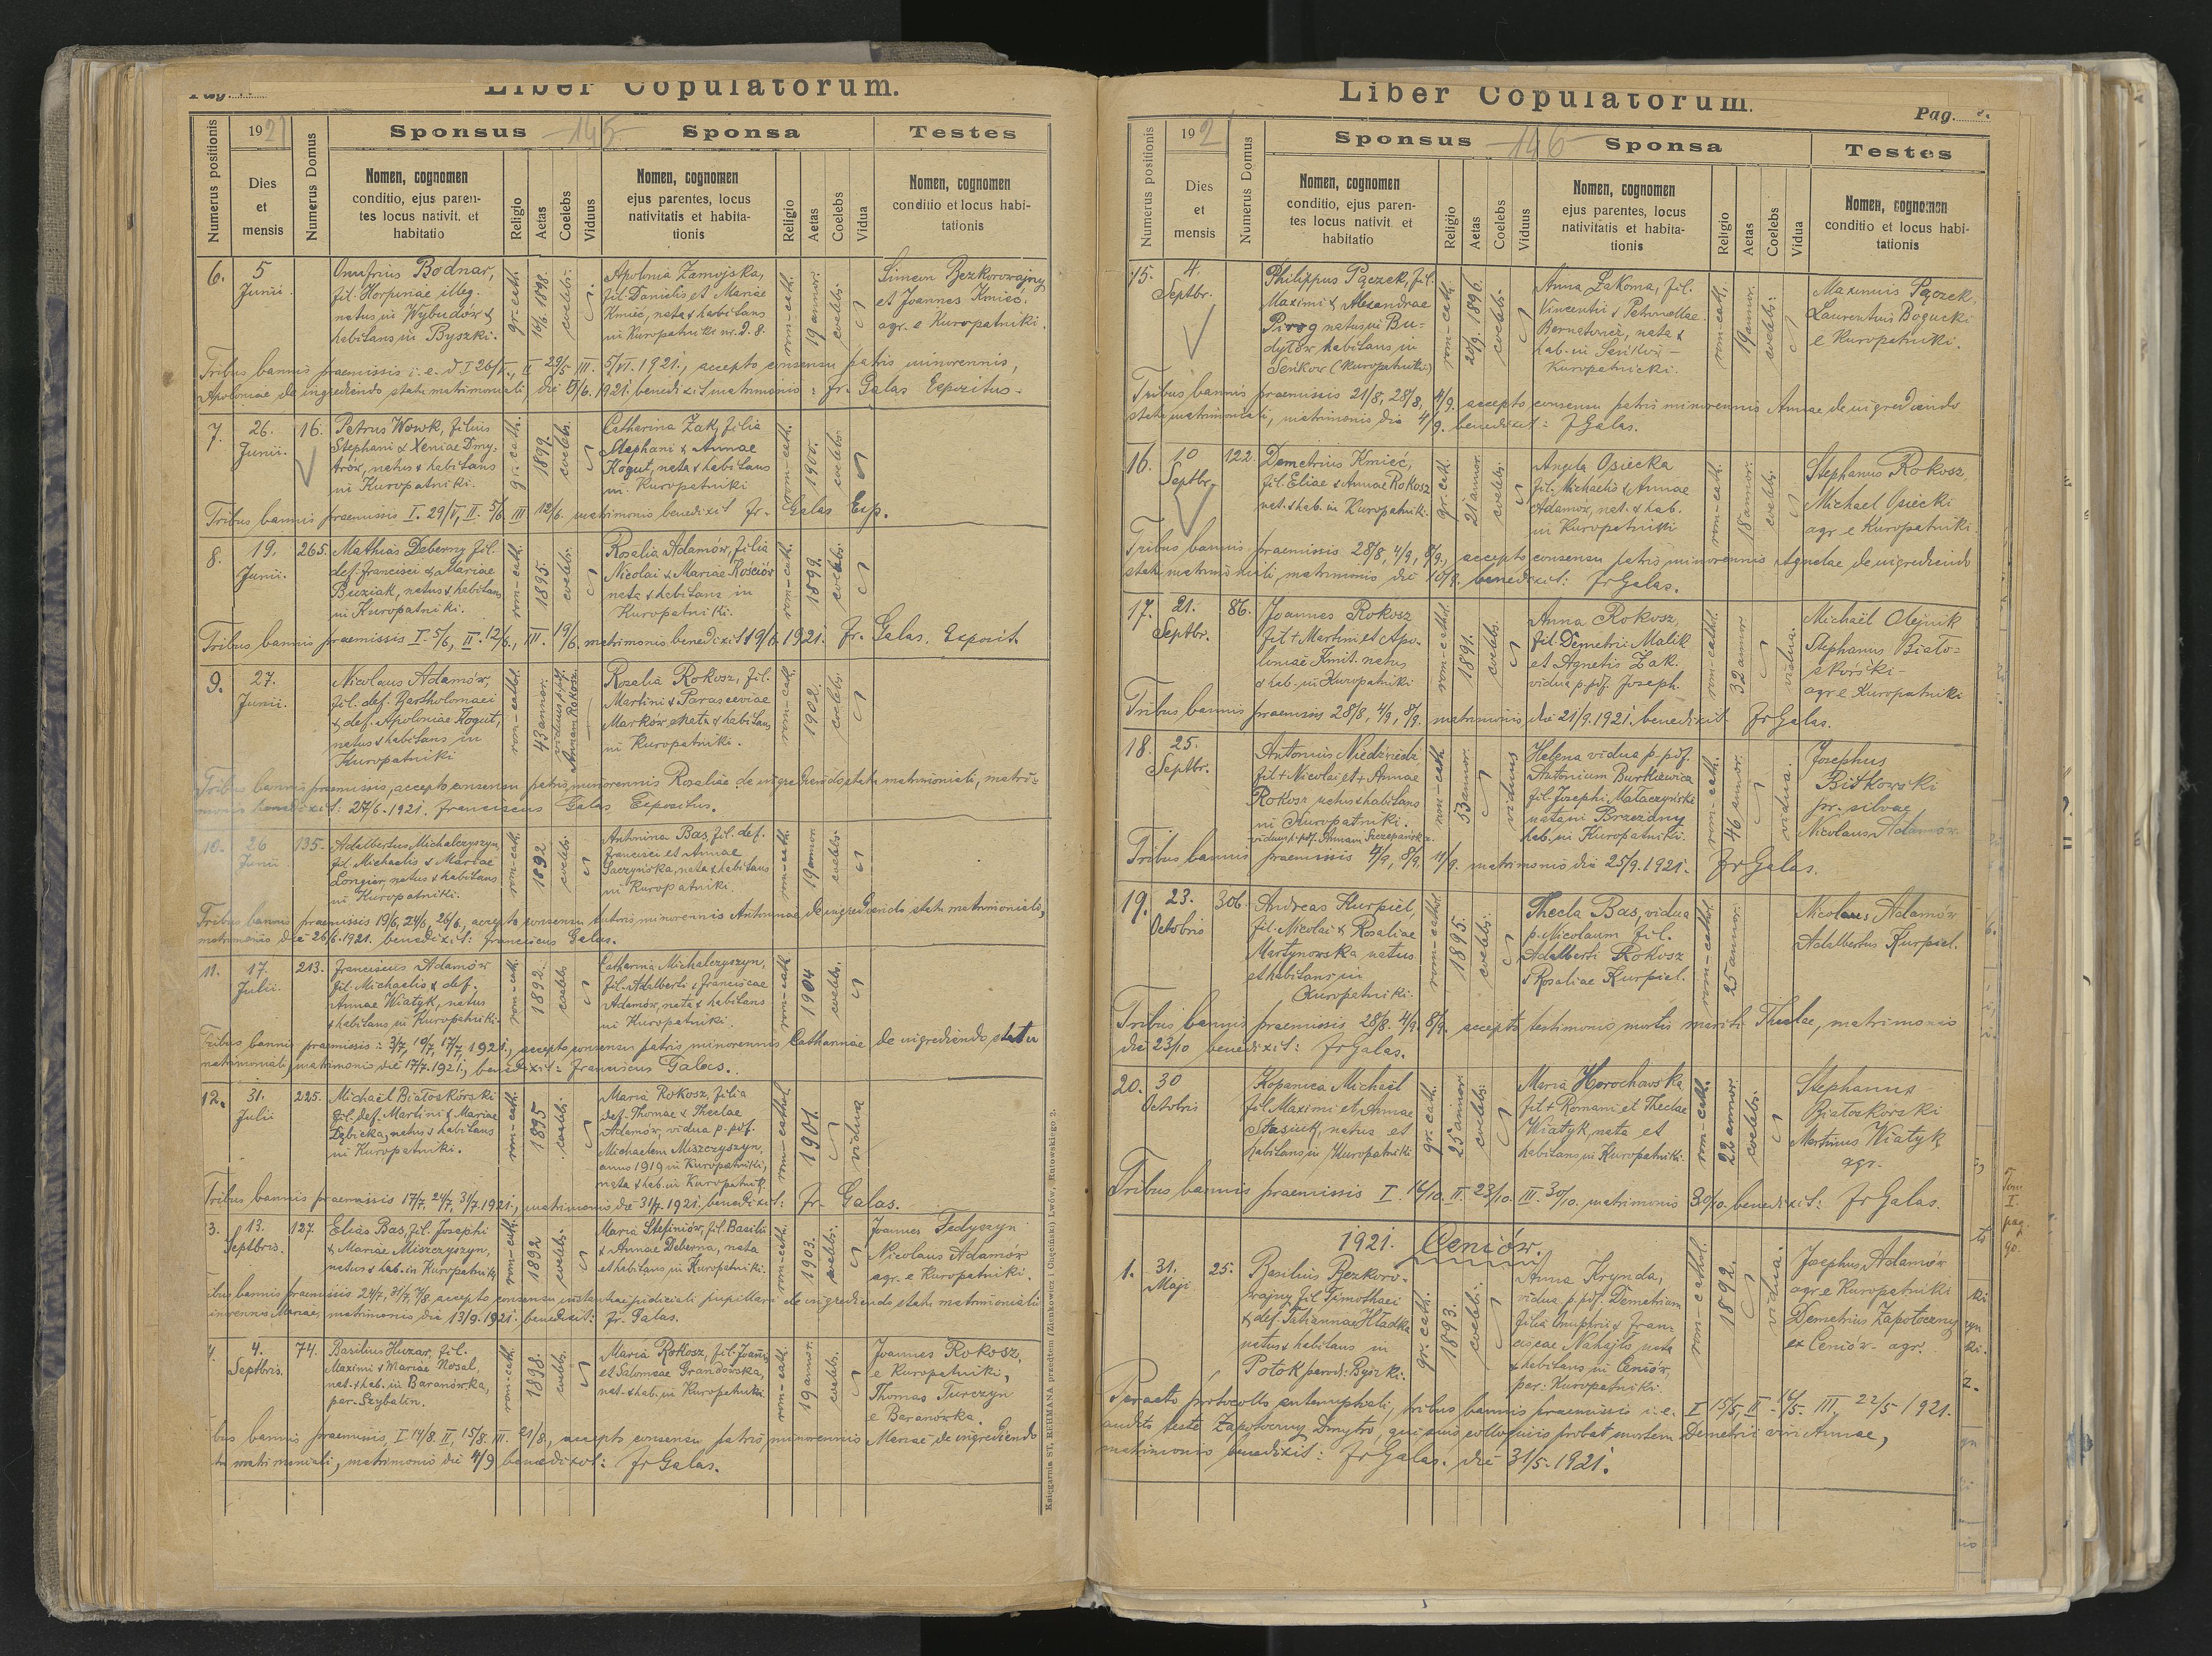 Liber Copulatorum.
1921
Sponsus
145
Sponsa
Testes
Numerus positionis
Dies et mensis
Numerus Domus
Nomen, cognomen
conditio, ejus paren-
tes locus nativit. et
habitatio
Religio
Aetas
Coelebs
Viduus
Nomen, cognomen
ejus parentes, locus
nativitatis et habita-
tionis
Religio
Aetas
Coelebs
Vidua
Nomen, cognomen
conditio et locus habi-
tationis
6.
5
Junii.
Onufrius Bodnar,
fil. Horpinae illeg.
natus in Wybudów &
habitans in Byszki.
gr. cath.
16/6 1898.
coelebs.
Apolonia Zamojska,
fil. Danielis et Mariae
Kmieć, nata & habitans
in Kuropatniki nr. d. 8.
rom-cath.
19 annor.
coelebs.
Simeon Bezkorowajny
et Joannes Kmieć.
agr. e Kuropatniki.
Tribus bannis praemissis i. e. d. I 26/V., II 29/5 III. 5/VI. 1921., accepto consensu patris minorennis,
Apoloniae de ingrediendo statu matrimoniali, die 5/6. 1921. benedixit matrimonio: Fr. Galas Expositus.
7.
26.
Junii.
16.
Petrus Wowk, filius
Stephani & Xeniae Dmy-
trów, natus & habitans
in Kuropatniki.
gr. cath.
1899.
coelebs.
Catharina Żak, filia
Stephani & Annae
Kogut, nata & habitans
in Kuropatniki
rom-cath.
1900.
coelebs.
Tribus bannis praemissis I. 29/V, II. 5/6 III 12/6. matrimonio benedixit Fr. Galas Exp.
8.
19.
Junii.
265.
Mathias Deberny fil.
def. Francisci & Mariae
Buziak, natus & habitans
in Kuropatniki.
rom-cath.
1895.
coelebs.
Rosalia Adamów, filia
Nicolai & Mariae Kościów
nata & habitans in
Kuropatniki.
rom-cath.
1899.
coelebs.
Tribus bannis praemissis I. 5/6, II. 12/6., III. 19/6. matrimonio benedixit 19/6. 1921. Fr. Galas. Exposit.
9.
27.
Junii.
Nicolaus Adamów,
fil. def. Bartholomaei
& def. Apoloniae Kogut,
natus & habitans in
Kuropatniki
rom-cathol.
43 annor.
viduus p. def.
Annam Rokosz.
Rozalia Rokosz, fil.
Martini & Parasceviae
Marków, nata & habitans
in Kuropatniki.
rom-cath.
1902.
coelebs
Tribus bannis praemissis, accepto consensu patris, minorennis Rosaliae de ingrediendo statu matrimoniali, matri-
monio benedixit: 27/6. 1921. Franciscus Galas Expositus.
10.
26
Junii
135.
Adalbertus Michalczyszyn,
fil. Michaelis & Mariae
Longier, natus & habitans
in Kuropatniki.
rom-cath.
1892
coelebs.
Antonina Bas, fil. def.
Francisci et Annae
Saczyńska, nata & habitans
in Kuropatniki.
rom-cath.
19 annor.
coelebs.
Tribus bannis praemissis 19/6, 24/6, 26/6, accepto consensu tutoris, minorennis Antoninae de ingrediendo statu matrimoniali,
matrimonio die 26/6. 1921. benedixit: Franciscus Galas.
11.
17.
Julii.
213.
Franciscus Adamów
fil. Michaelis & def.
Annae Wiatyk, natus
& habitans in Kuropatniki.
rom-cath.
1892.
coelebs
Catharina Michalczyszyn,
fil. Adalberti & Franciscae
Adamów, nata & habitans
in Kuropatniki.
rom-cath.
1904
coelebs.
Tribus bannis praemissis: 3/7, 10/7, 17/7, 1921., accepto consensu patris minorennis Catharinae de ingrediendo statu
matrimoniali, matrimonio die 17/7. 1921., benedixit: Franciscus Galas.
12.
31.
Julii
225.
Michaël Białoskórski
fil. def. Martini & Mariae
Dębicka, natus & habitans
in Kuropatniki.
rom-cath.
1895
coelebs.
Maria Rokosz, filia
def. Thomae & Theclae
Adamów, vidua p. def.
Michaelem Miszczyszyn,
anno 1919 in Kuropatniki,
nata & hab. in Kuropatnik.
rom-cathol.
1901.
vidua
Tribus bannis praemissis 17/7, 24/7, 31/7. 1921., matrimonio die 31/7. 1921. benedixit: Fr. Galas.
3.
13.
Septbris.
127.
Elias Bas, fil. Josephi
& Mariae Miszczyszyn,
natus & hab. in Kuropatniki
rom-cath.
1892
coelebs.
Maria Stefiniów, fil. Basilii
& Annae Deberna, nata
et habitans in Kuropatniki.
rom-cath.
1903.
coelebs.
Joannes Fedyszyn
Nicolaus Adamów
agr. e Kuropatniki.
ibus bannis praemissis 24/7, 31/7, 7/8 accepto consensu instantiae judiciali pupillari de ingrediendo statu matrimoniali
inorennis Mariae, matrimonio die 13/9. 1921. benedixit: Fr. Galas.
4.
4.
Septbris.
74.
Basilius Huzar, fil.
Maximi & Mariae Nosal,
nat. & hab. in Baranówka,
par. Szybalin.
rom-cath.
1898.
coelebs.
Maria Rokosz, fil. Joannis
et Salomeae Grandowska,
nat. & hab. in Kuropatniki
rom-cath.
19 annor.
coelebs.
Joannes Rokosz,
e Kuropatniki,
Thomas Turczyn
e Baranówka.
bus bannis praemissis, I 14/8. II. 15/8. III. 21/8., accepto consensu patris minorennis Mariae de ingrediendo
tu matrimoniali, matrimonio die 4/9 benedixit: Fr Galas.
Księgarnia ST. REHMANA przedtem (Zienkowicz i Chęciński) Lwów, Rutowskiego 2.
Liber Copulatorum.
Pag.
192
Sponsus
146
Sponsa
Testes
Numerus positionis
Dies et mensis
Numerus Domus
Nomen, cognomen
conditio, ejus paren-
tes locus nativit. et
habitatio
Religio
Aetas
Coelebs
Viduus
Nomen, cognomen
ejus parentes, locus
nativitatis et habita-
tionis
Religio
Aetas
Coelebs
Vidua
Nomen, cognomen
conditio et locus habi-
tationis
15.
4.
Septbr.
Philippus Pączek, fil.
Maximi & Alexandrae
Pirog natus in Bu-
dyłów habitans in
Seńków (Kuropatniki)
rom-cath.
26/9. 1896.
coelebs.
Anna Żakoma, fil.
Vincentii & Petronellae
Bernatowicz, nata &
hab. in Seńków -
Kuropatnicki.
rom-cath.
19 annor.
coelebs.
Maximus Pączek,
Laurentius Bogucki
e Kuropatniki.
Tribus bannis praemissis 21/8, 28/8, 4/9. accepto consensu patris minorennis Annae de ingrediendo
statu matrimoniali, matrimonio die 4/9. benedixit: Fr Galas.
16.
10
Septbr.
122.
Demetrius Kmieć,
fil. Eliae & Annae Rokosz
nat. & hab. in Kuropatniki.
gr. cath.
21 annor.
coelebs.
Angela Osiecka
fil. Michaelis & Annae
Adamów, nat. & hab.
in Kuropatniki
rom-cath.
18 annor.
coelebs.
Stephanus Rokosz,
Michael Osiecki
agr. e Kuropatniki
Tribus bannis praemissis 28/8, 4/9, 8/9., accepto consensu patris minorennis Agnelae de ingrediendo
statu matrimoniali, matrimonio die 10/9. benedixit: Fr Galas.
17.
21.
Septbr.
86.
Joannes Rokosz
fil + Martini et Apo-
loniae Kmit. natus
& hab. in Kuropatniki
rom-cathol.
1891.
coelebs.
Anna Rokosz,
fil. Demetrii Malik
et Agnetis Żak.
vidua p. def. Joseph.
rom-cathol.
32 annor
vidua.
Michaël Olejnik
Stephanus Biało=
skórski -
agr e Kuropatniki
Tribus bannis praemissis 28/8, 4/9, 8/9. matrimonio die 21/9. 1921. benedixit Fr Galas.
18.
25.
Septbr.
Antonius Niedźwiedź,
fil + Nicolai et + Annae
Rokosz natus & habitans
in Kuropatniki.
viduus p. def. Annam Szczepańska.
rom-cath.
53 annor.
viduus
Helena vidua p. def.
Antonium Burkiewicz
fil. Josephi Małaczyński
nata in Brzeżany
hab. in Kuropatniki.
rom-cath.
46 annor.
vidua.
Josephus
Bitkowski
pr. silvae
Nicolaus Adamów.
Tribus bannis praemissis 4/9, 8/9, 11/9. matrimonio die 25/9. 1921. Fr Galas.
19.
23.
Octobris
306.
Andreas Kurpiel,
fil. Nicolai & Rosaliae
Martynowska natus
et habitans in
Kuropatniki.
rom-cathol.
1895.
coelebs.
Thecla Bas, vidua
p. Nicolaum fil.
Adalberti Rokosz
& Rosaliae Kurpiel.
rom-cathol.
25 annor.
Nicolaus Adamów
Adalbertus Kurpiel.
Tribus bannis praemissis 28/8. 4/9. 8/9. accepto testimonio mortis mariti Theclae, matrimonio
die 23/10 benedixit: Fr Galas.
20.
30
Octobris
Kopanica Michaël
fil. Maximi et Annae
Stasiuk, natus et
habitans in Kuropatniki
gr. cath.
25 annor.
coelebs.
Maria Horochowska
fil + Romani et Theclae
Wiatyk, nata et
habitans in Kuropatniki.
rom-cath.
22 annor.
coelebs.
Stephanus
Białoskorski
Martinus Wiatyk
agr.
Tribus bannis praemissis I. 16/10. II. 23/10. III. 30/10. matrimonio 30/10. benedixit: Fr Galas.
1921. Ceniów.
1.
31.
Maji
25.
Basilius Bezkoro-
wajny fil Timothaei
& def. Tatianna Hładka
natus & habitans in
Potok paroch: Byszki.
gr. cath.
1893.
coelebs.
Anna Krynda,
vidua p. def. Demetrium
filia Onuphrii & Fran-
ciscae Nahajło nata
& habitans in Ceniów,
par: Kuropatniki.
rom-cathol.
1892.
vidua.
Josephus Adamów
agr e Kuropatniki
Demetrius Zapotoczny
ex Ceniów - agr.
Peracto protocollo antenuptiali, tribus bannis praemissis i. e. I 15/5, II - 16/5. III, 22/5 1921.
audito teste Zapotoczny Dmytro, qui probat mortem Demetrii viri Annae,
matrimonio benedixit: Fr Galas. die 31/5. 1921.
Tom
I.
pag.
90.